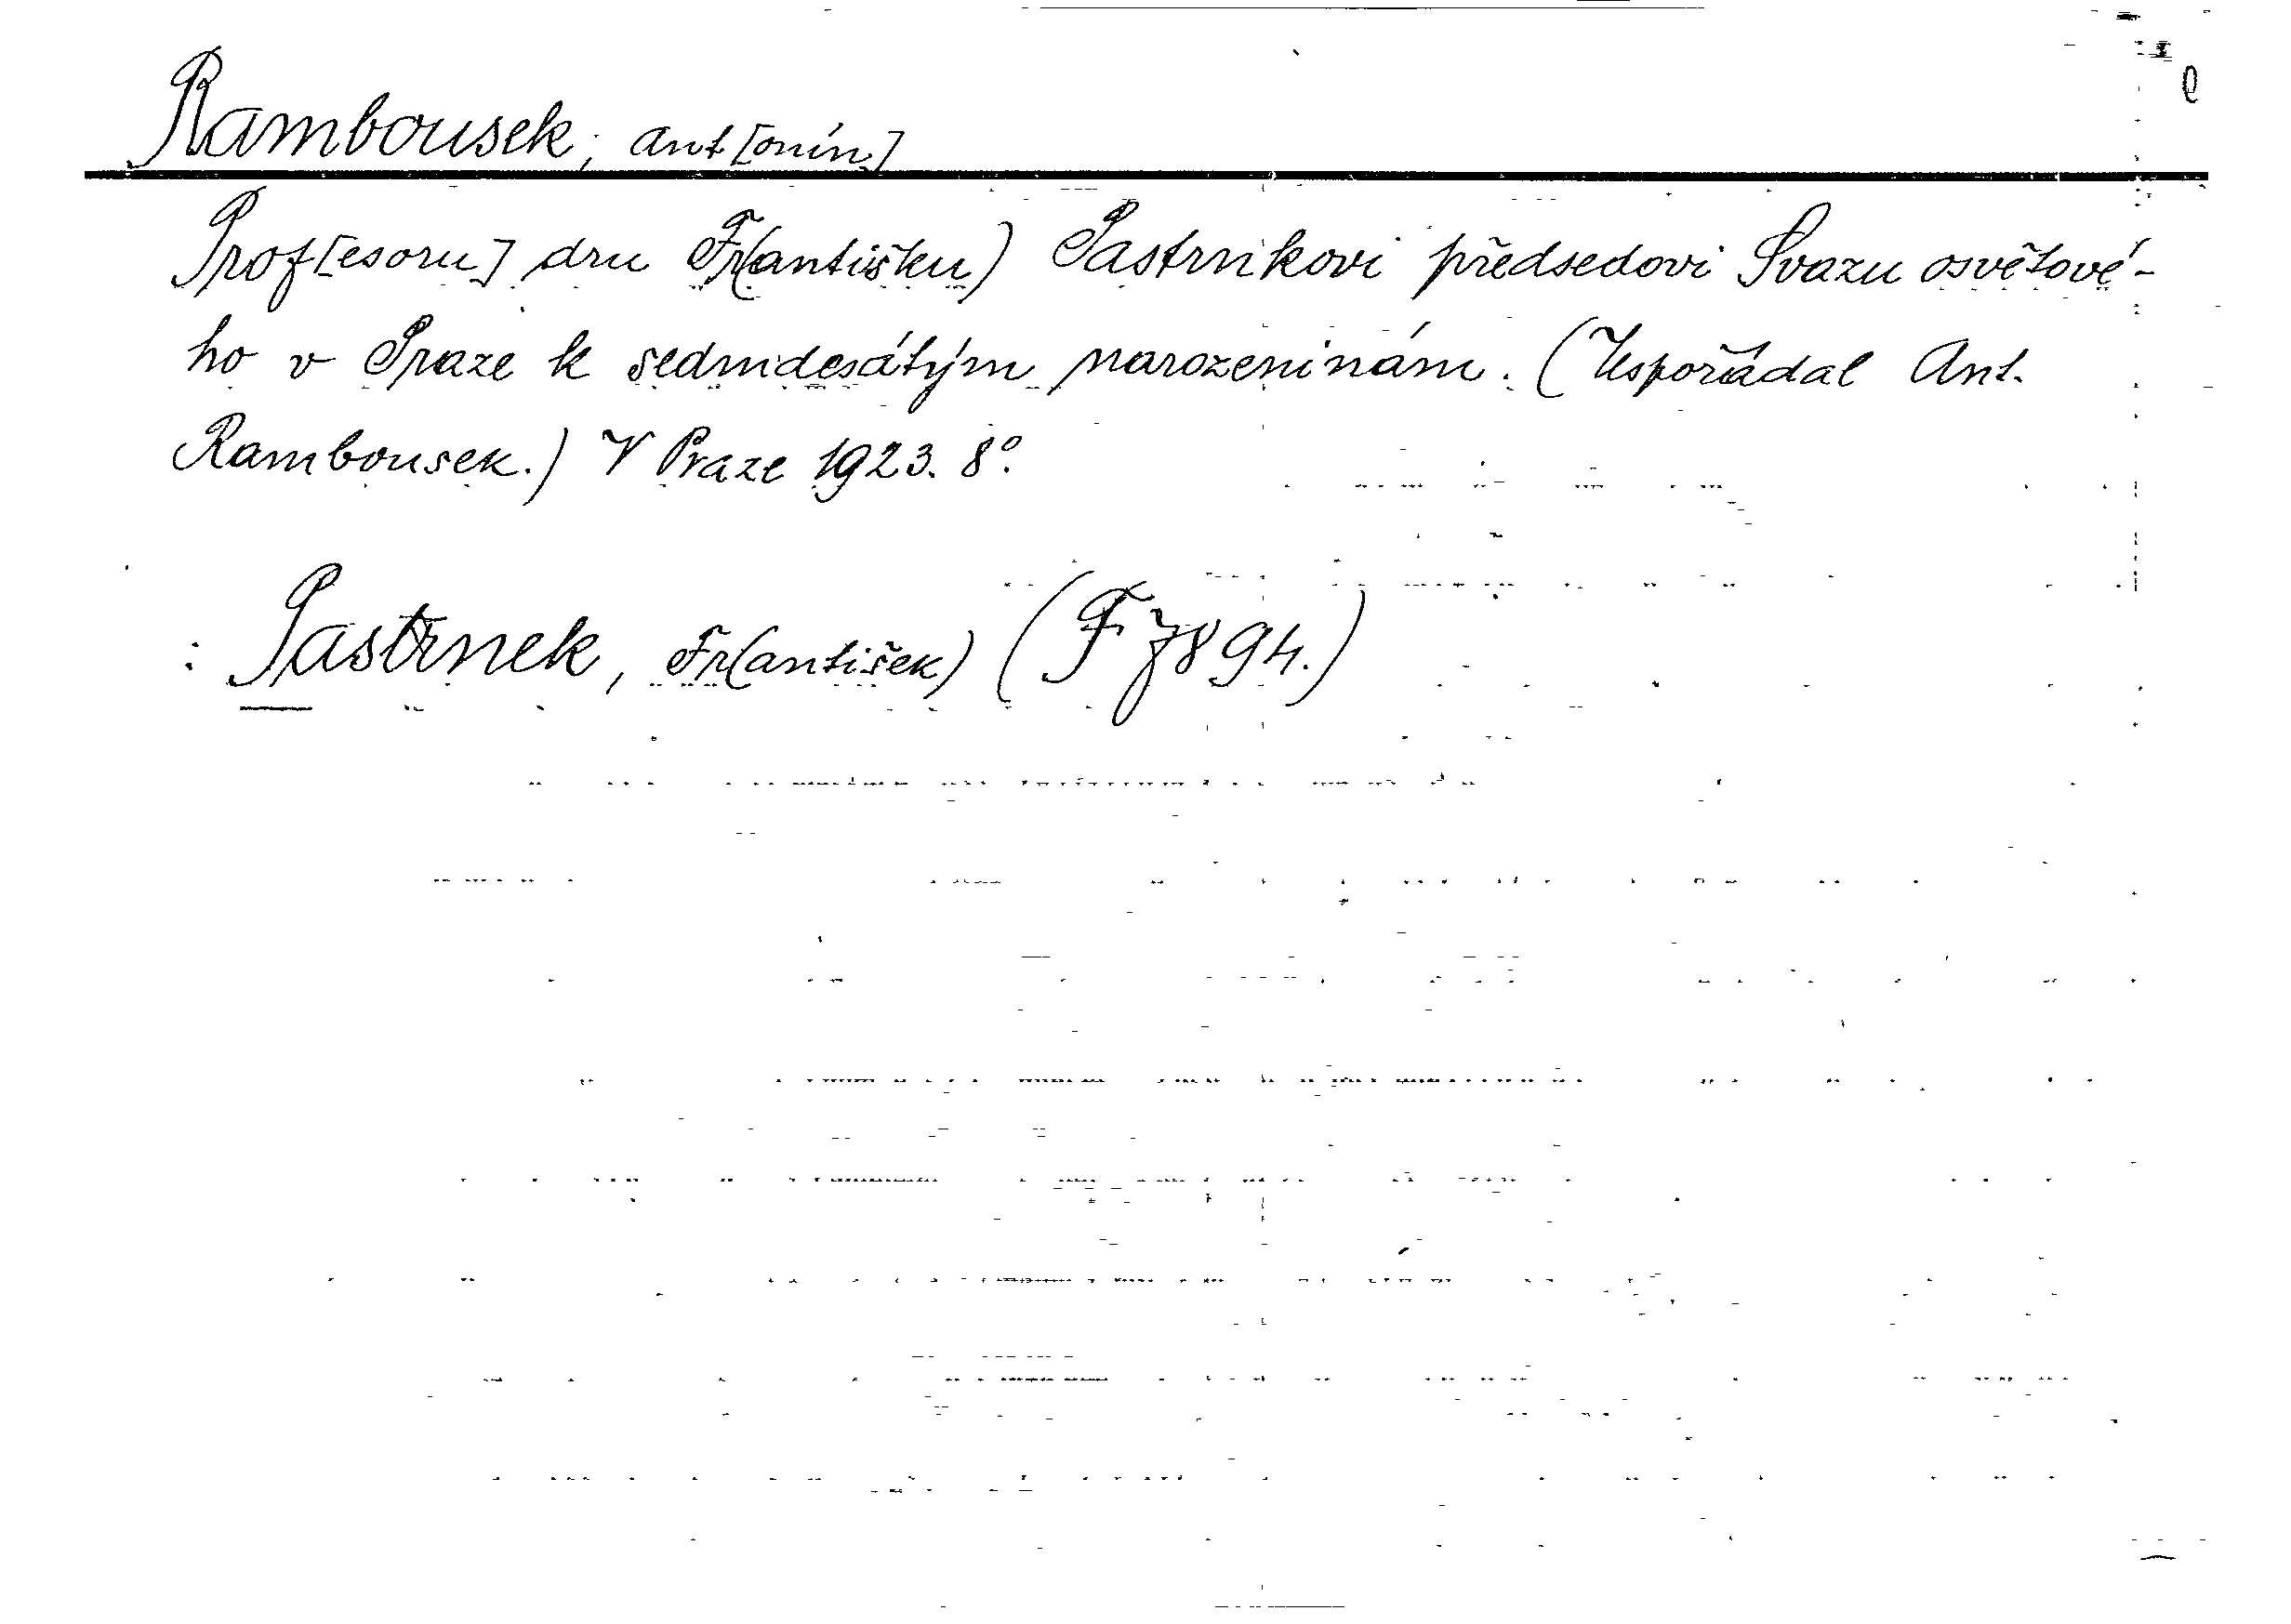 Rambousek, Ant[onín]
Prof[esoru] dru Fr(antišku) Pastrnkovi předsedovi Svazu osvětové-
ho v Praze k sedmdesátým narozeninám. (Uspořádal Ant.
Rambousek.) V Praze 1923. 8°.
: Pastrnek, Fr(antišek) (F 7894.)